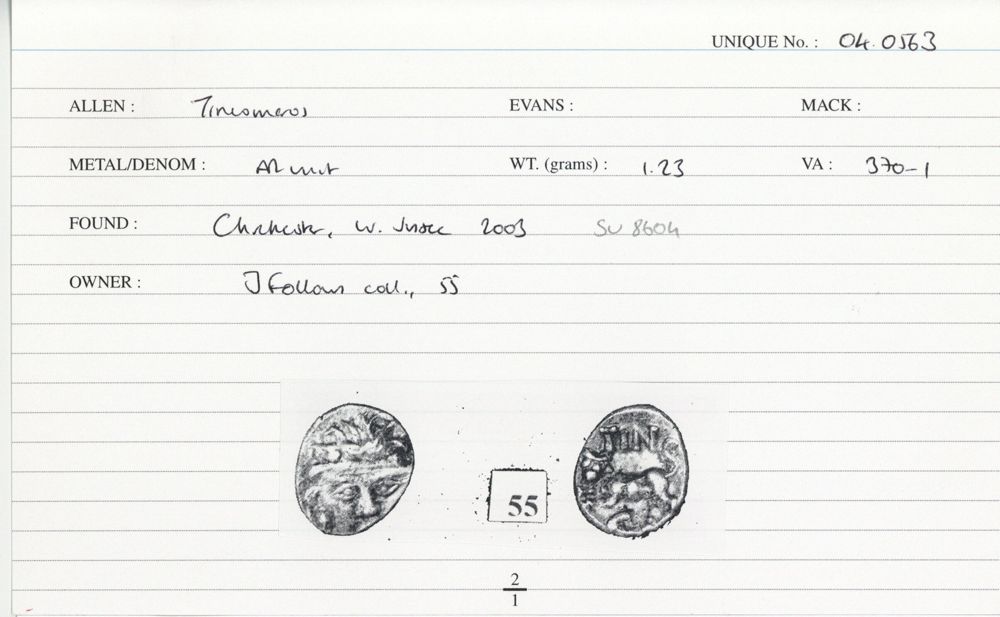 UNIQUE No. : 04.0563
ALLEN : Tincomeros EVANS : MACK :
METAL/DENOM : AR unit WT. (grams) : 1.23 VA : 370-1
FOUND : Chichester, W. Sussex 2003 SU 8604
OWNER : J Follows coll., 55
TINC
55
2
1